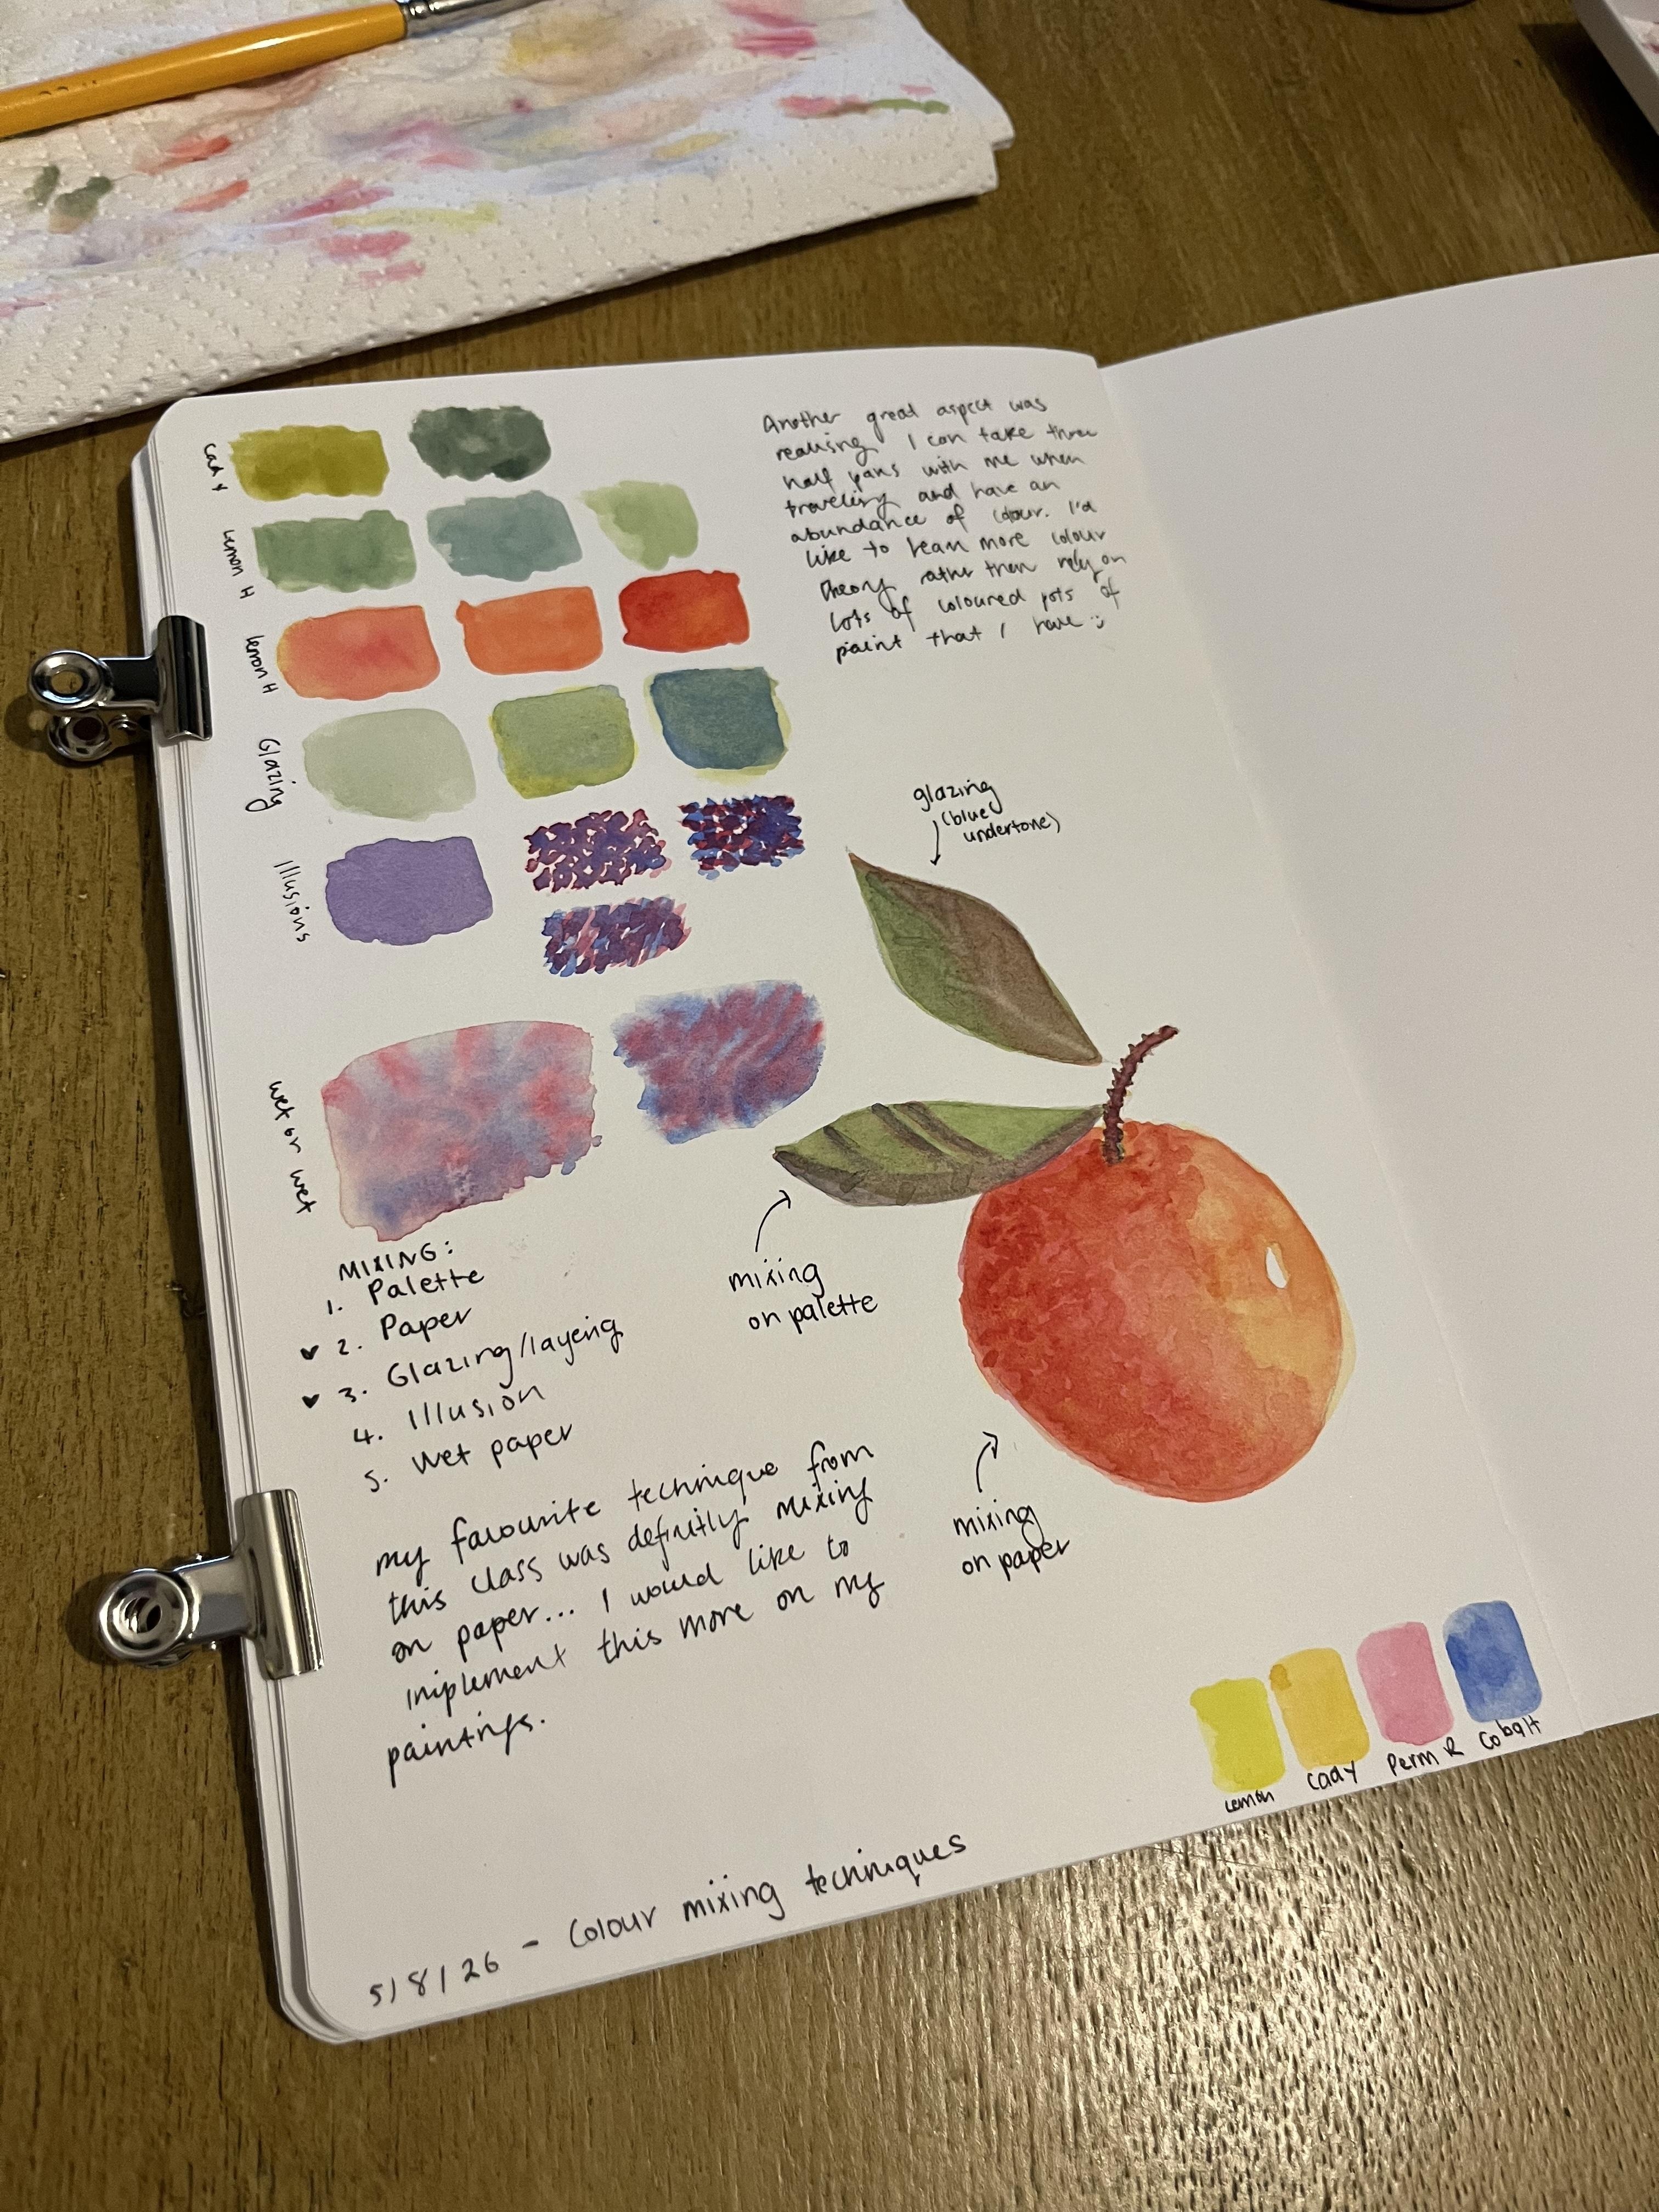 Cad Y
Lemon H
Lemon H
Glazing
Illusions
wet on wet
Another great aspect was
realising I can take three
half pans with me when
traveling and have an
abundance of colour. I'd
like to lean more colour
theory rather then rely on
lots of coloured pots of
paint that I have :)
glazing
(blue
undertone)
mixing
on palette
mixing
on paper
MIXING:
1. Palette
♥ 2. Paper
♥ 3. Glazing/layeing
4. Illusion
5. Wet paper
my favourite technique from
this class was definitly mixing
on paper... I would like to
implement this more on my
paintings.
Lemon
Cad Y
Perm R
Cobalt
5/8/26 - Colour mixing techniques